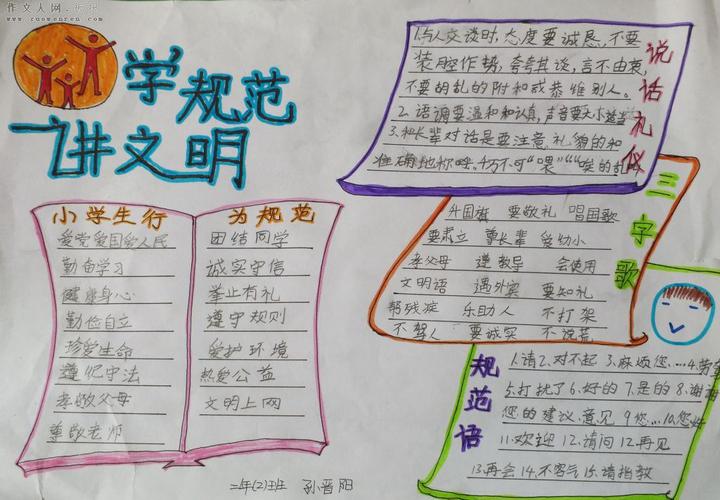 作文人网
www.zuowenren.com
学规范
讲文明
小学生行
为规范
爱党爱国爱人民
勤奋学习
健康身心
勤俭自立
珍爱生命
遵纪守法
孝敬父母
尊敬老师
团结同学
诚实守信
举止有礼
遵守规则
爱护环境
热爱公益
文明上网
二年(2)班 孙晋阳
说话礼仪
1.与人交谈时,态度要诚恳,不要
装腔作势,夸夸其谈,言不由衷,
不要胡乱的附和或恭维别人。
2.语调要温和和认真,声音要大小适当
3.和长辈对话是要注意礼貌的和
准确地称呼。千万不可"喂""唉的乱
三字歌
升国旗 要敬礼 唱国歌
要肃立 尊长辈 爱幼小
孝父母 遵教导 会使用
文明语 遇外宾 要知礼
帮残疾 乐助人 不打架
不骂人 要诚实 不说荒
规范语
1.请2.对不起 3.麻烦您...4.劳
5.打扰了6.好的7.是的8.谢谢
您的建议.意见 9您...10.您好
11.欢迎 12.请问 12.再见
13.再会 14.不客气 15.请指教